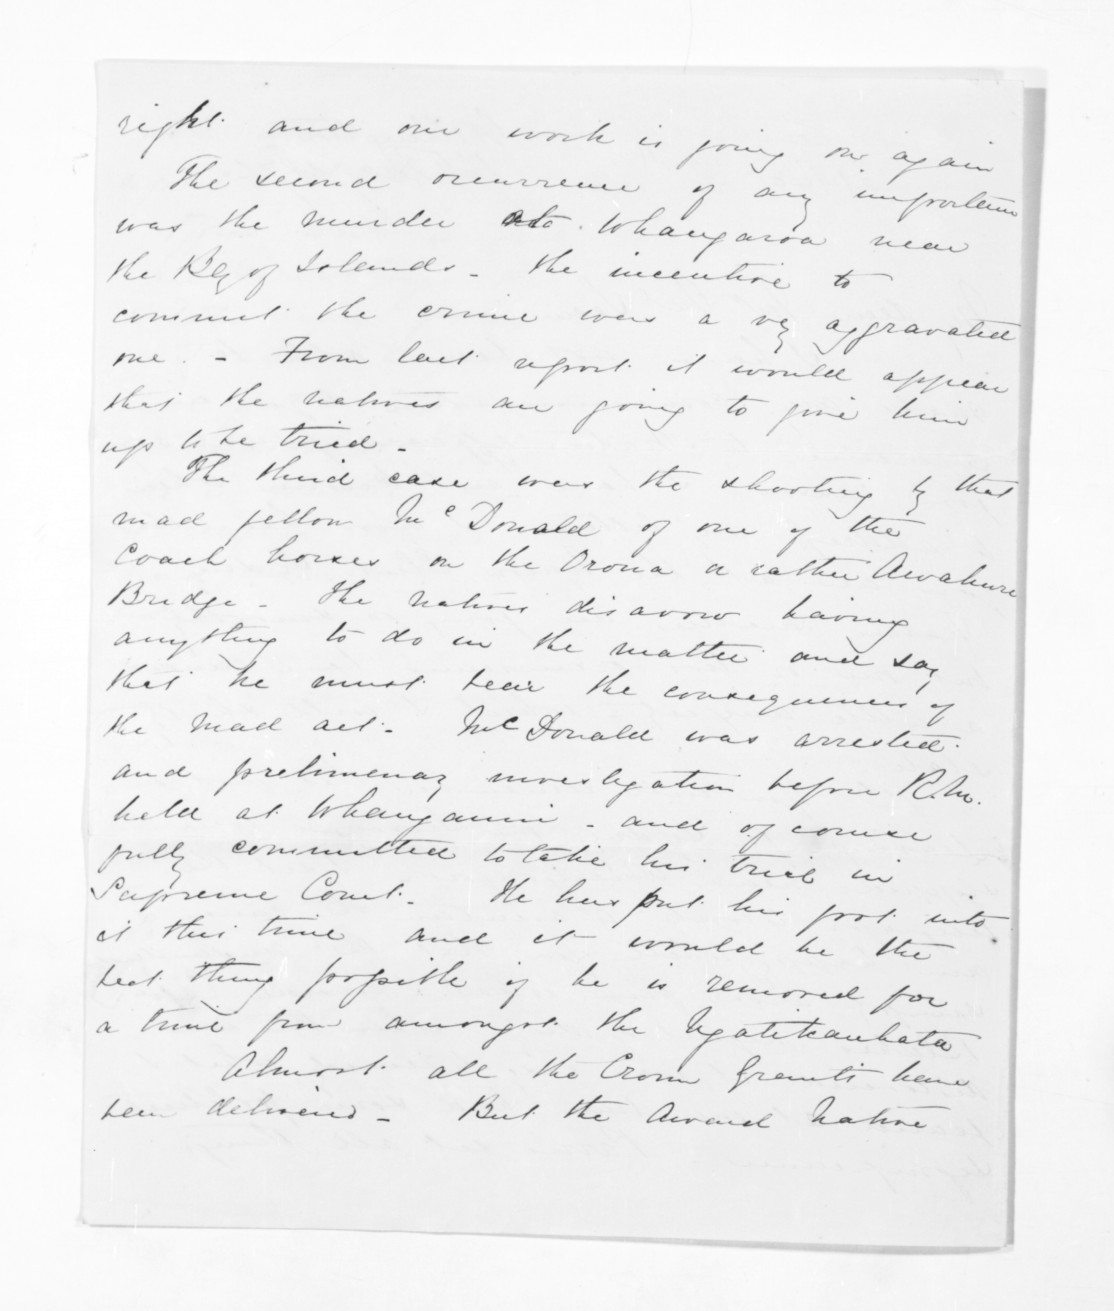 right and our work is going on again
The second occurrence of any importance
was the murder at Whangaroa near
the Bay of Islands - the incentive to
commit the crime was a vy aggravated
one. - From last report it would appear
that the natives are going to give him
up to be tried -
The third case was the shooting by that
mad fellow Mc Donald of one of the
Coach horses on the Oroua or rather Awahuri
Bridge - The natives disavow having
anything to do in the matter and say
that he must bear the consequences of
the mad act - Mc Donald was arrested
and prelimenay investigation before R.M.
held at Whanganui - and of course
fully committed to take his trial in
Supreme Court - He has put his foot into
it this time and it would be the
best thing possible if he is removed for
a time from amongst the Ngatikauhata
Almost all the Crown Grants have
been delivered - But the Award Native